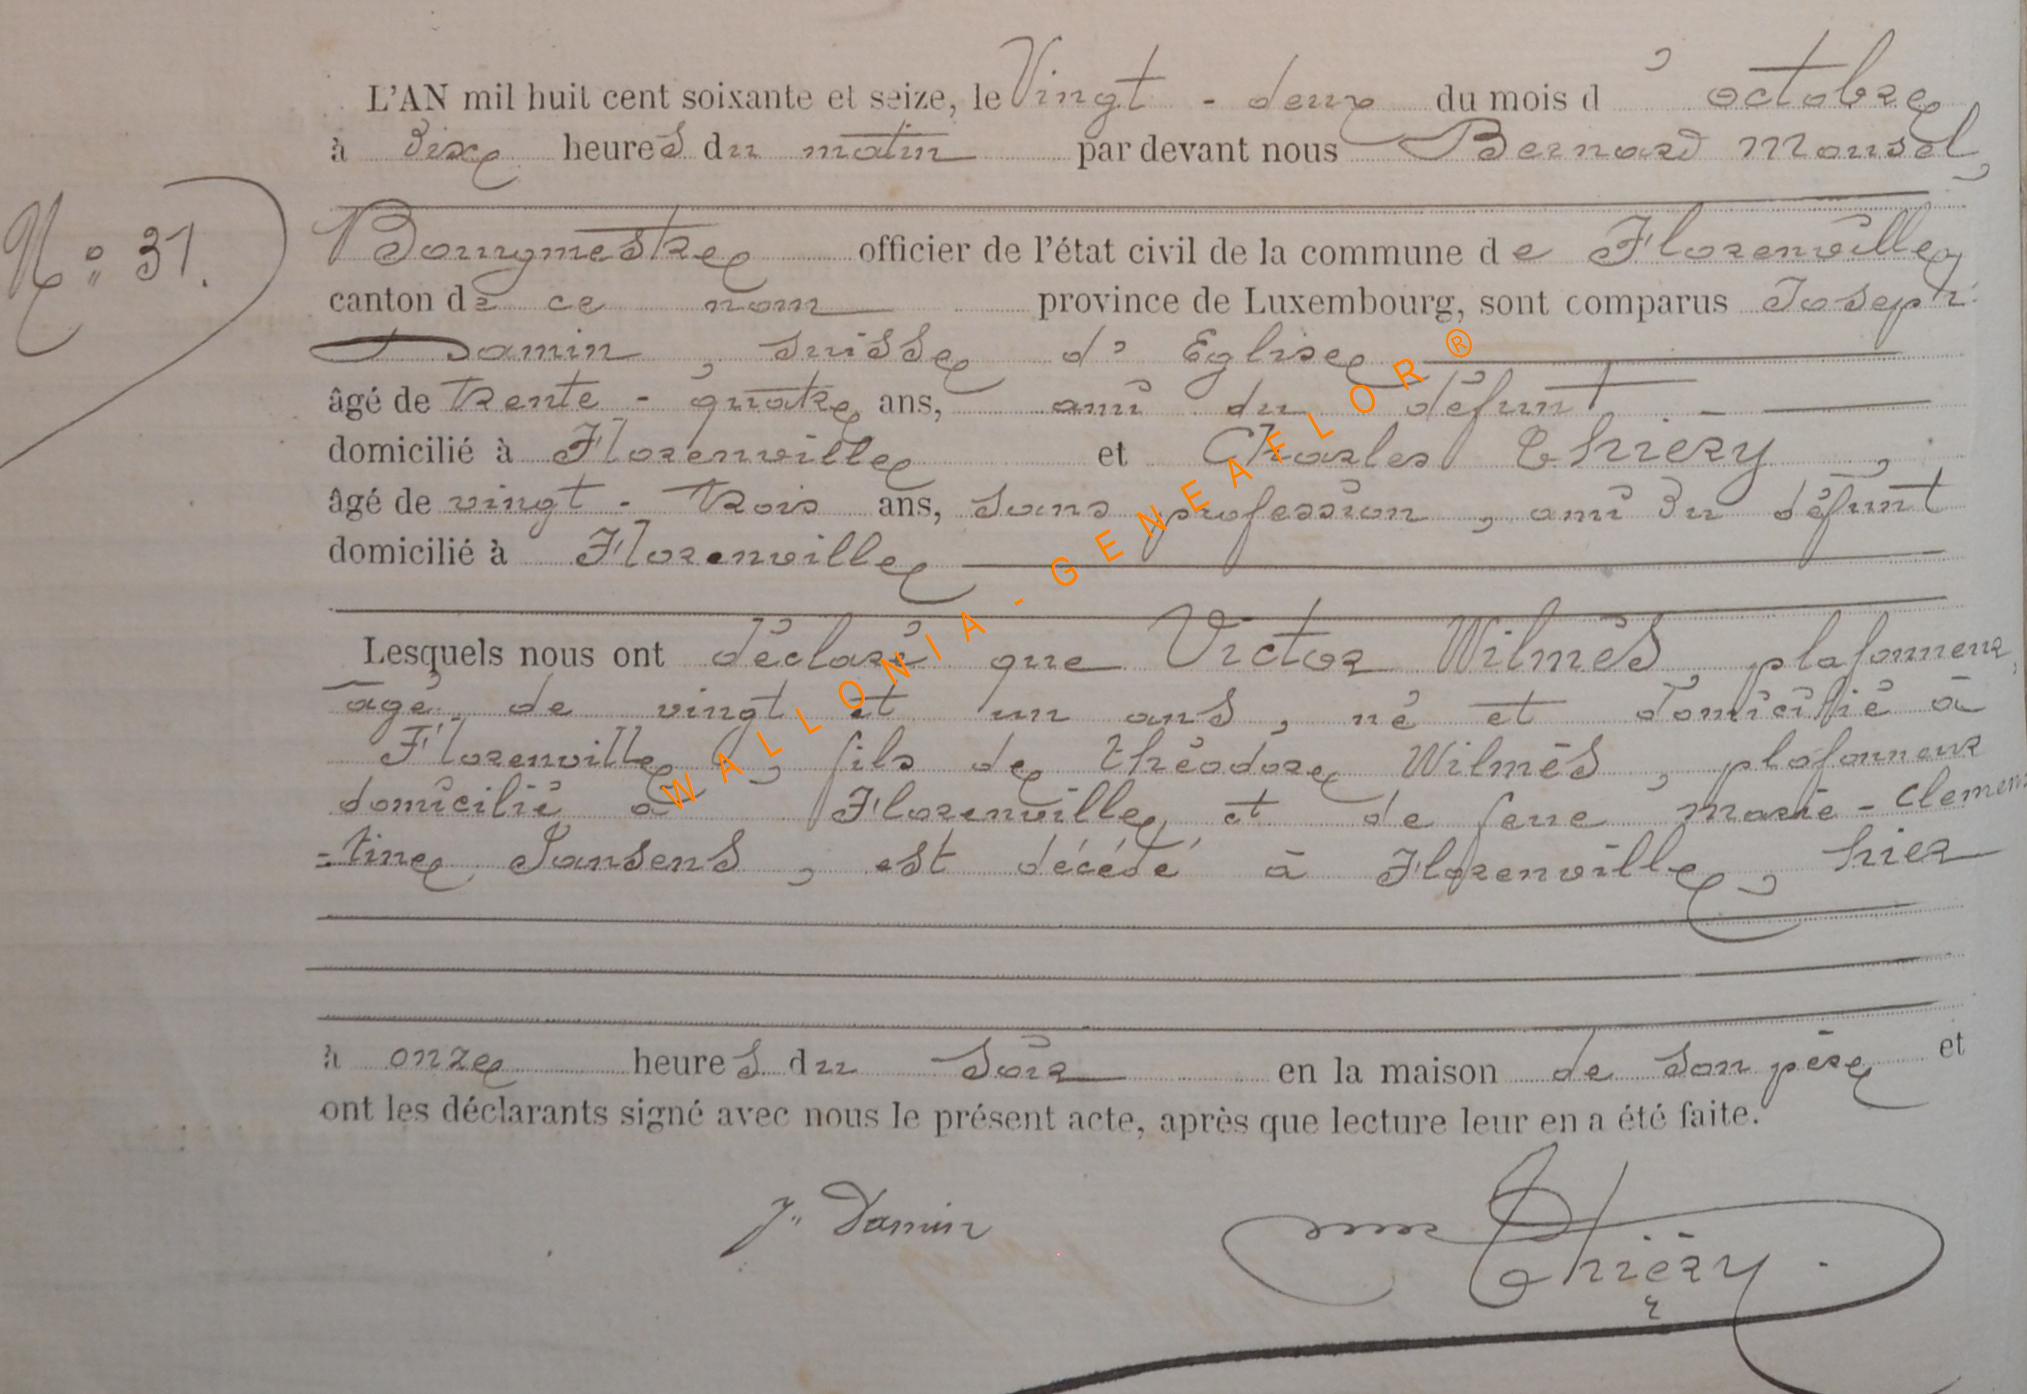 L'AN mil huit cent soixante et seize, le Vingt - deux du mois d' octobre
à dix heures du matin par devant nous Bernard Mousel,
N° 31.
Bourgmestre officier de l'état civil de la commune de Florenville
canton de ce nom province de Luxembourg, sont comparus Joseph
Damin, suisse d'Eglise
âgé de trente - quatre ans, ami du défunt
domicilié à Florenville et Charles Thiery
âgé de vingt - trois ans, sans profession, ami du défunt
domicilié à Florenville
Lesquels nous ont déclaré que Victor Wilmès, plafonneur,
âgé de vingt et un ans, né et domicilié à
Florenville, fils de théodore Wilmès, plafonneur
domicilié à Florenville et de feue marie - Clemen
=tine Jansens, est décédé à Florenville, hier
à onze heures du soir en la maison de son père et
ont les déclarants signé avec nous le présent acte, après que lecture leur en a été faite.
J. Damin
Thiéry.
WALLONIA-GENEAFLOR®